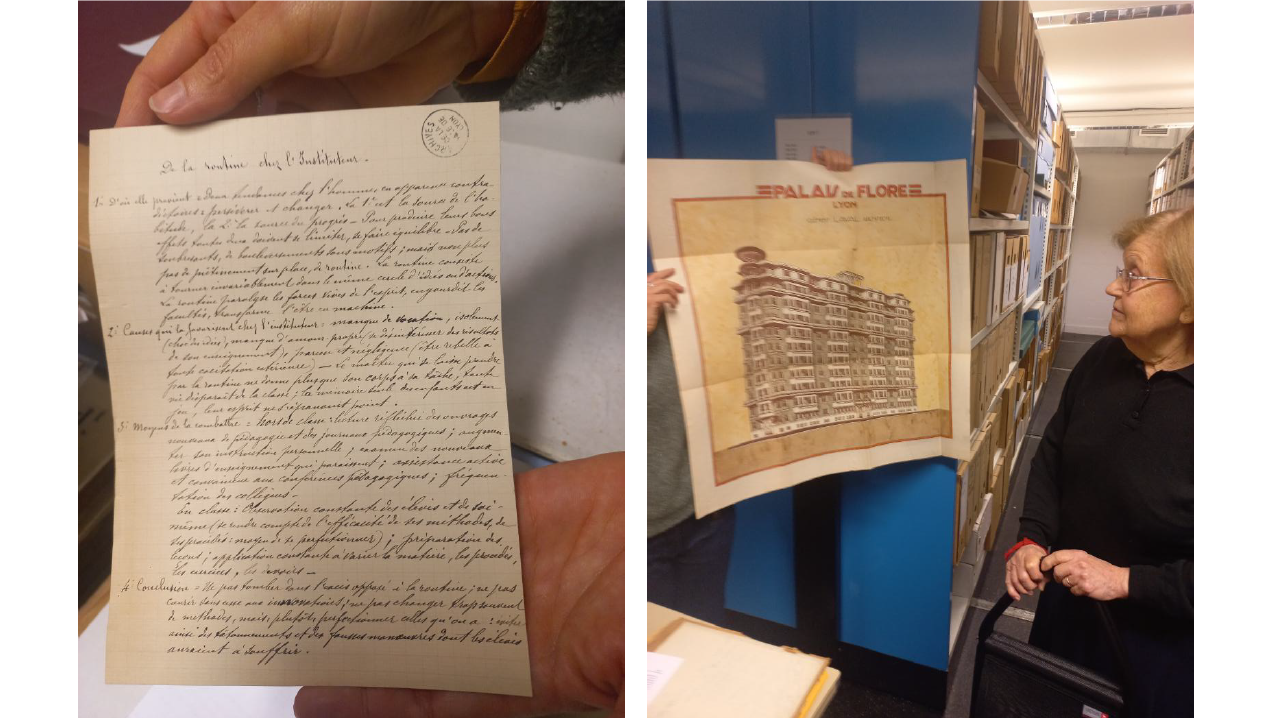 ARCHIVES
De la routine chez l'Instituteur.
1° D'où elle provient = Deux tendances chez l'homme en apparence contra-
dictoires : persévérer et changer. La 1e est la source de l'ha-
bitude, la 2e la source du progrès. Pour produire leurs bons
effets toutes deux doivent se limiter, se faire équilibre. Pas de
soubresauts, de bouleversements sans motifs ; mais non plus
pas de piétinement sur place, de routine. La routine consiste
à tourner invariablement dans le même cercle d'idées ou d'actions.
La routine paralyse les forces vives de l'esprit, engourdit les
facultés, transforme l'être en machine.
2° Causes qui la favorisent chez l'instituteur : manque de vocation, isolement
(choc des idées), manque d'amour propre, se désintéresser des résultats
de son enseignement), paresse et négligence, être rebelle à
toute excitation extérieure) — Le maître qui se laisse prendre
par la routine ne donne plus que son corps à sa tâche, toute
vie disparaît de la classe ; la mémoire seule des enfants est en
jeu, leur esprit ne s'épanouit point.
3° Moyens de la combattre = hors de classe : lecture réfléchie des ouvrages
nouveaux de pédagogie et des journaux pédagogiques ; augmen-
ter son instruction personnelle ; examen des nouveaux
livres d'enseignement qui paraissent ; assistance active
et convaincue aux conférences pédagogiques ; fréquen-
tation des collègues.
En classe : Observation constante des élèves et de soi-
même (se rendre compte de l'efficacité de ses méthodes, de
ses procédés : moyen de se perfectionner) ; préparation des
leçons ; application constante à varier la matière, les procédés,
les exercices, les devoirs —
4° Conclusion = Ne pas tomber dans l'excès opposé à la routine ; ne pas
courir sans cesse aux innovations ; ne pas changer trop souvent
de méthodes, mais plutôt perfectionner celles qu'on a : éviter
ainsi des tâtonnements et des fausses manœuvres dont les élèves
auraient à souffrir.
PALAIS DE FLORE
LYON